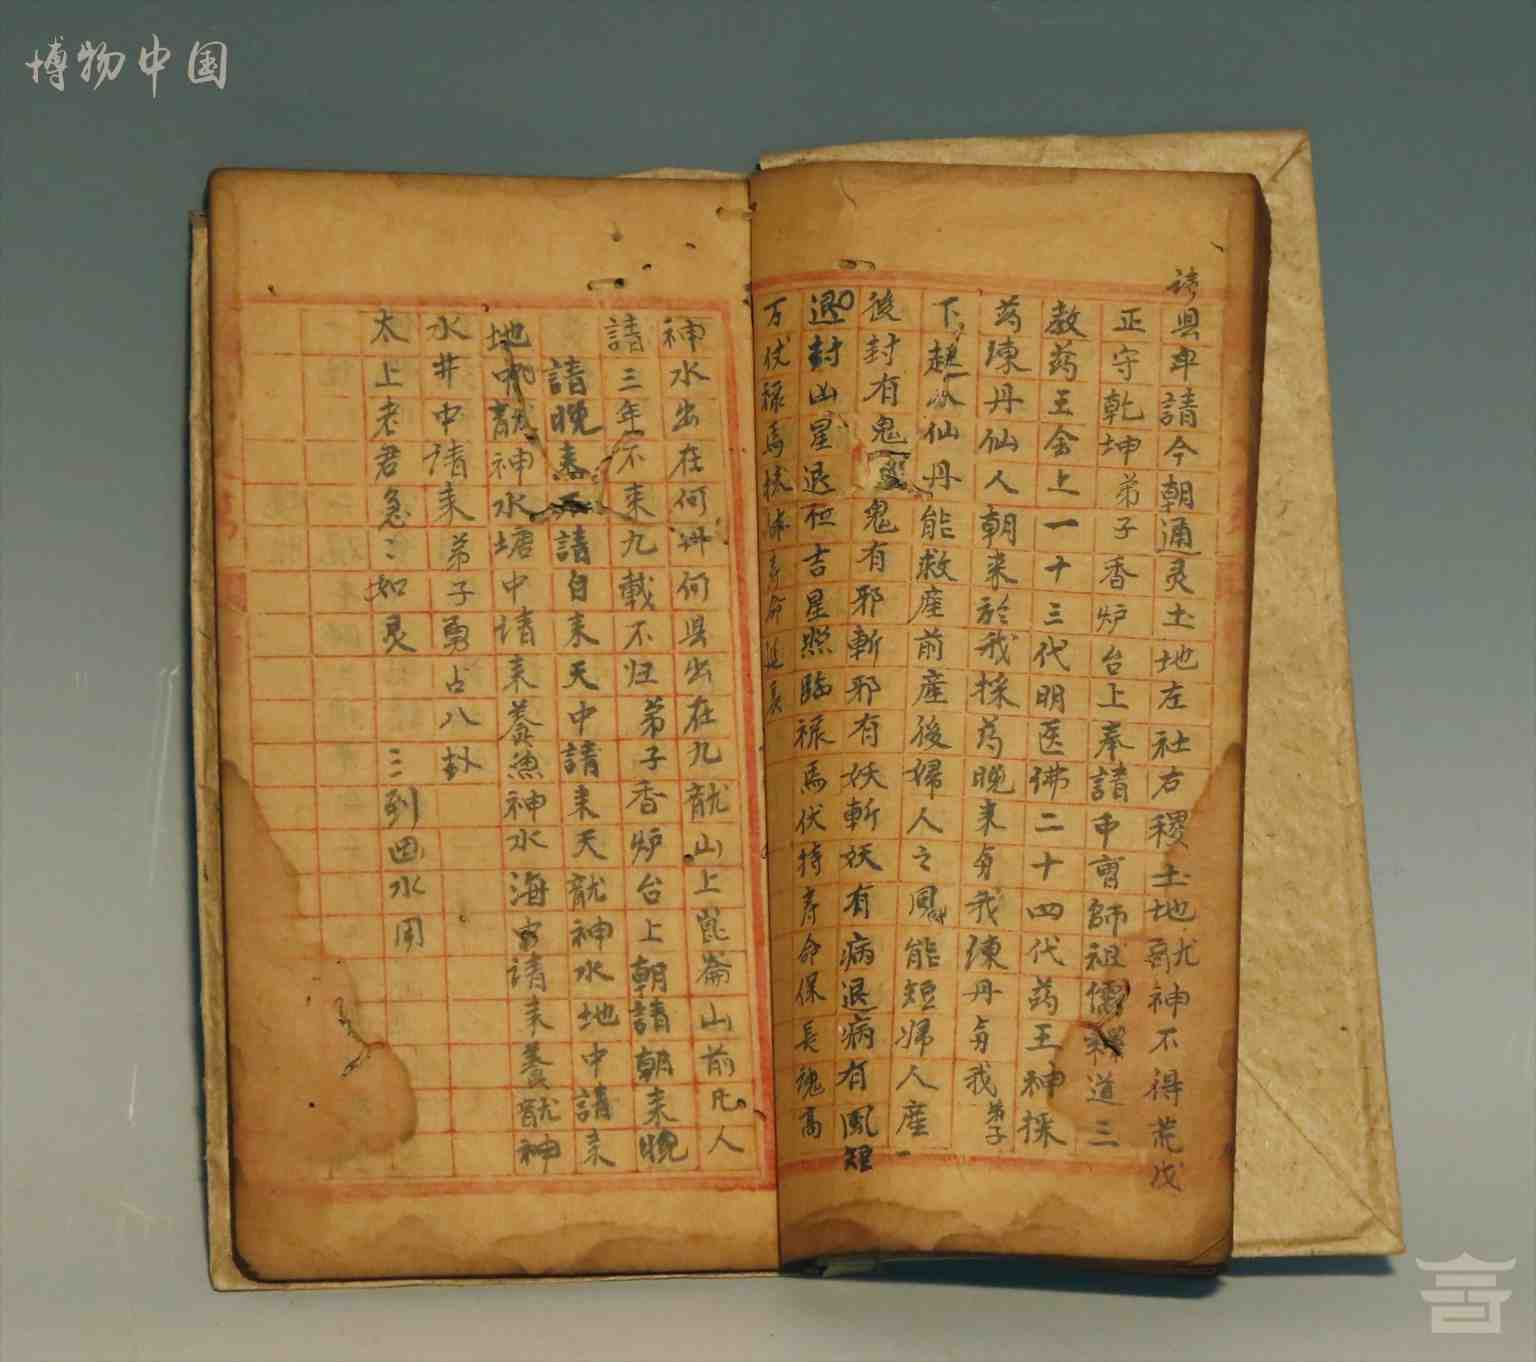 博物中国
请县牟請今朝通灵土地左社右稷土地龍神不得荒茂
正守乾坤弟子香炉台上奉請中曹師祖儒釋道三
教药王会上一十三代明医佛二十四代药王神採
药陳丹仙人朝来於我採药晚来身我陳丹身我弟子
下仙丹能救産前産後婦人之風能短婦人産
後封有鬼鬼有邪斬邪有妖斬妖有病退病有風短
退封凶星退位吉星照臨禄馬伏持寿命保長魂高
万伏禄馬扶体寿命延長
神水出在何州何县出在九龍山上崑崙山前凡人
請三年不来九載不归弟子香炉台上朝請朝来晚
請晚来不請自来天中請来天龍神水地中請来
地中龍神水塘中请来养魚神水海中请来養龍神
水井中请来弟子勇占八卦
太上老君急：如灵 三到回水用